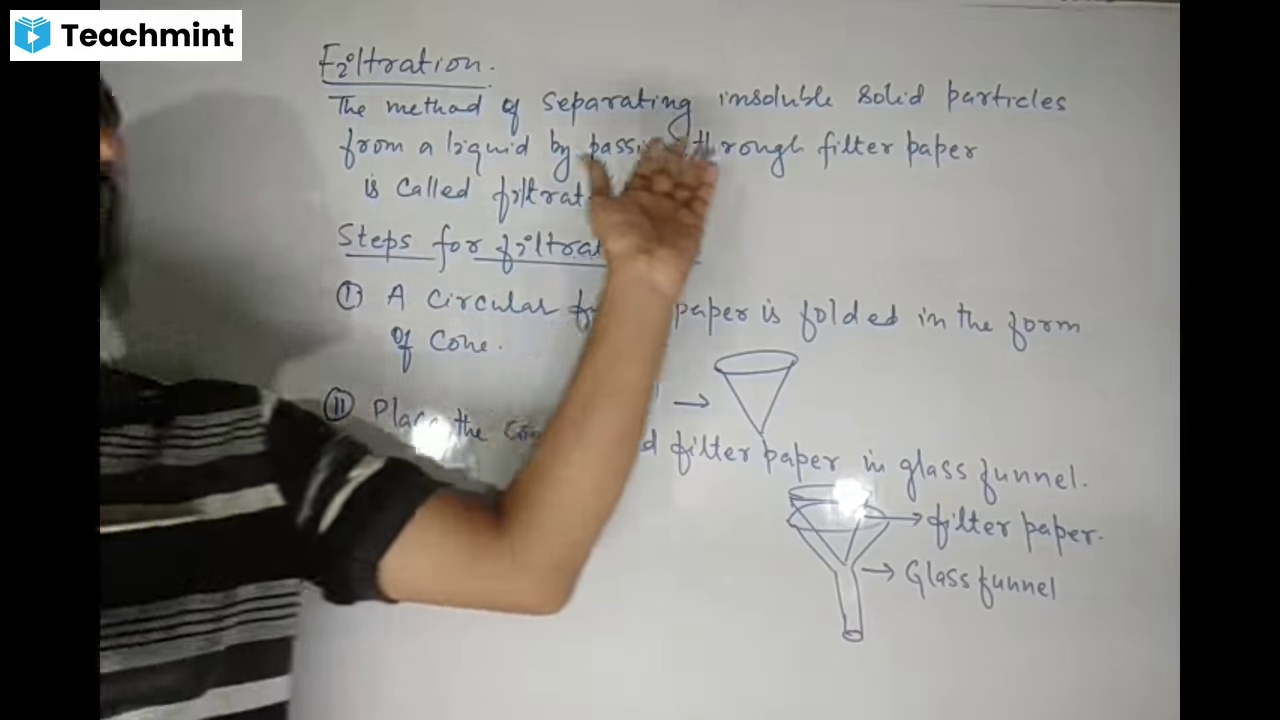 Teachmint
Filtration.
The method of separating insoluble solid particles
from a liquid by through filter paper
is called
Steps for
I A Circular paper is folded in the form
of Cone.
→
II Place the filter paper in glass funnel.
→ filter paper.
→ Glass funnel